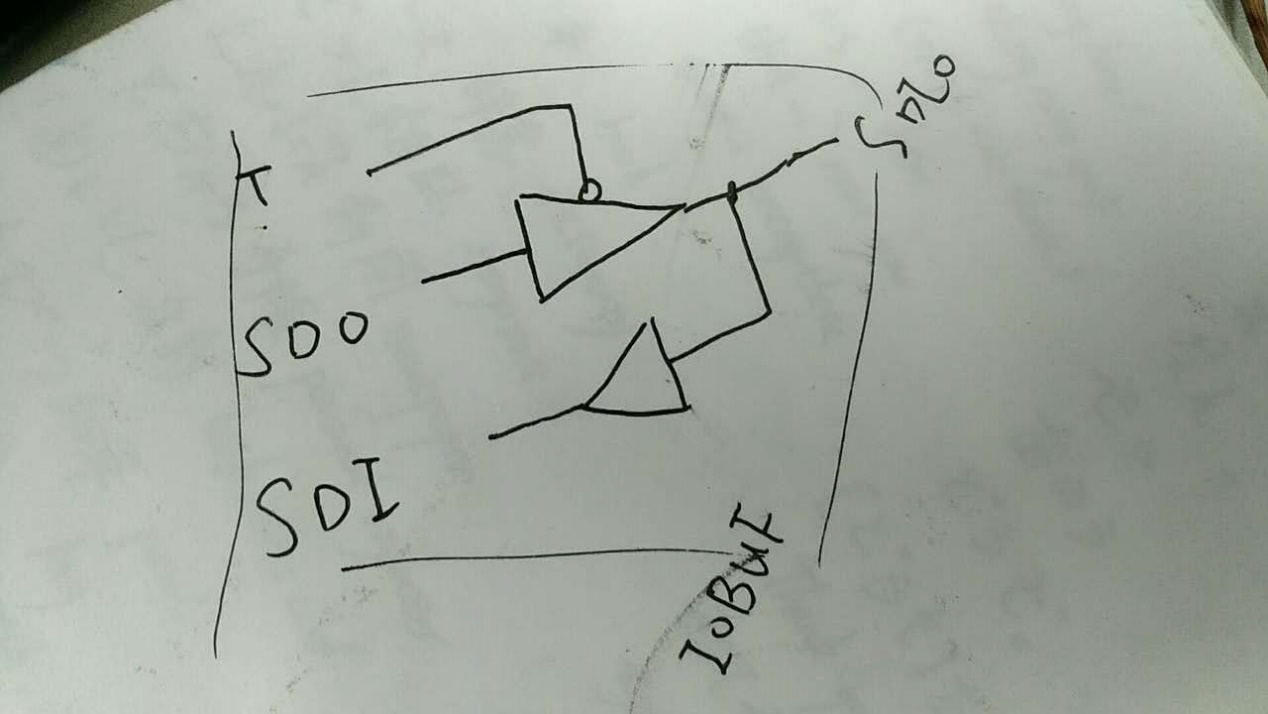 T
SDIO
SDO
SDI
IOBUF